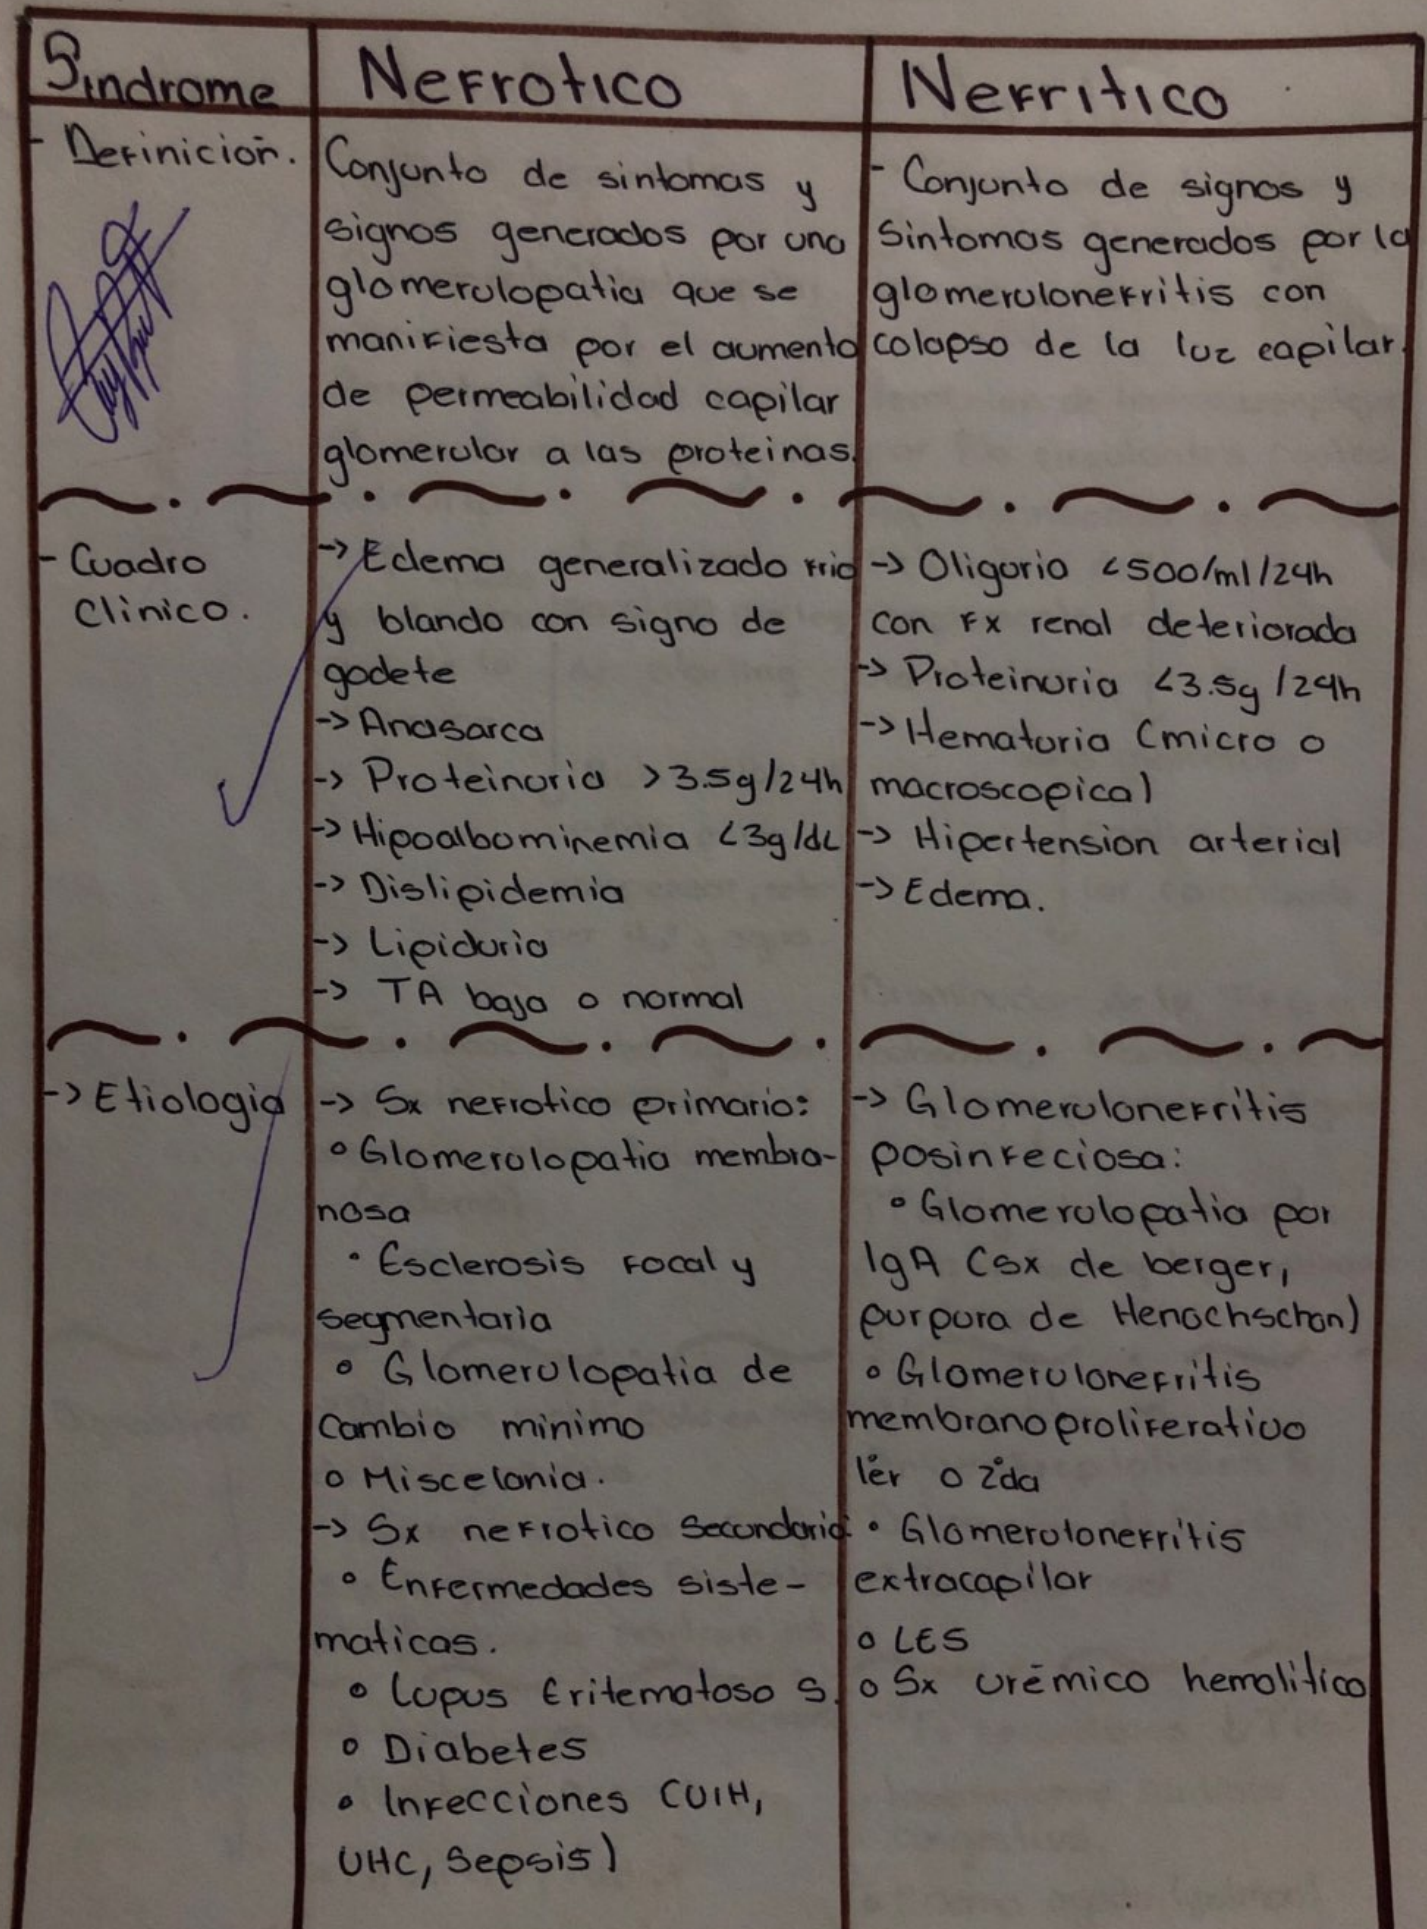 Síndrome
Nefrotico
Nefritico
- Definición.
Conjunto de sintomas y
signos generados por una
glomerulopatia que se
manifiesta por el aumento
de permeabilidad capilar
glomerular a las proteinas.
- Conjunto de signos y
Sintomas generados por la
glomerulonefritis con
colapso de la luz capilar.
- Cuadro
Clinico.
-> Edema generalizado frio
y blando con signo de
godete
-> Anasarca
-> Proteinuria >3.5g/24h
-> Hipoalbuminemia <3g/dL
-> Dislipidemia
-> Lipiduria
-> TA baja o normal
-> Oliguria <500/ml/24h
con Fx renal deteriorada
-> Proteinuria <3.5g/24h
-> Hematuria (micro o
macroscopica)
-> Hipertension arterial
-> Edema.
-> Etiologia
-> Sx nefrotico primario:
• Glomerulopatia membra-
nosa
• Esclerosis focal y
segmentaria
• Glomerulopatia de
Cambio minimo
• Miscelania.
-> Sx nefrotico Secundario:
• Enfermedades siste-
maticas.
• Lupus Eritematoso S.
• Diabetes
• Infecciones (VIH,
VHC, Sepsis)
-> Glomerulonefritis
posinfeciosa:
• Glomerulopatia por
IgA (sx de berger,
purpura de Henochschon)
• Glomerulonefritis
membranoproliferativo
1er o 2da
• Glomerulonefritis
extracapilar
• LES
• Sx urémico hemolitico